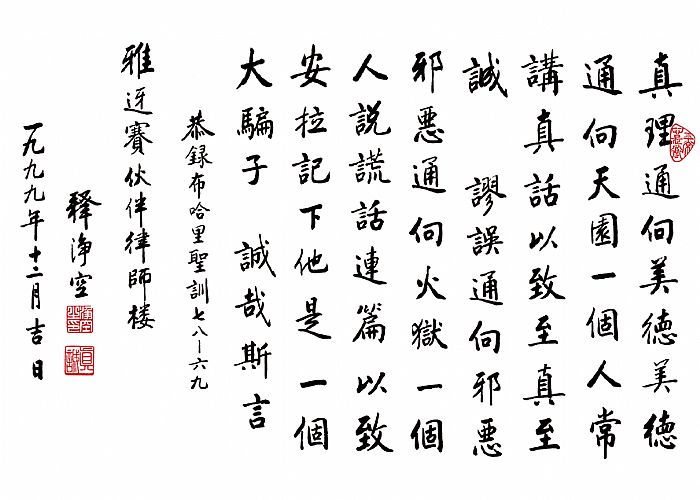 真理通向美德美德
通向天園一個人常
講真話以致至真至
誠 謬誤通向邪惡
邪惡通向火獄一個
人說謊話連篇以致
安拉記下他是一個
大騙子 誠哉斯言
恭録布哈里聖訓七八—六九
雅迓賽伙伴律師楼
釋净空
一九九九年十二月吉日